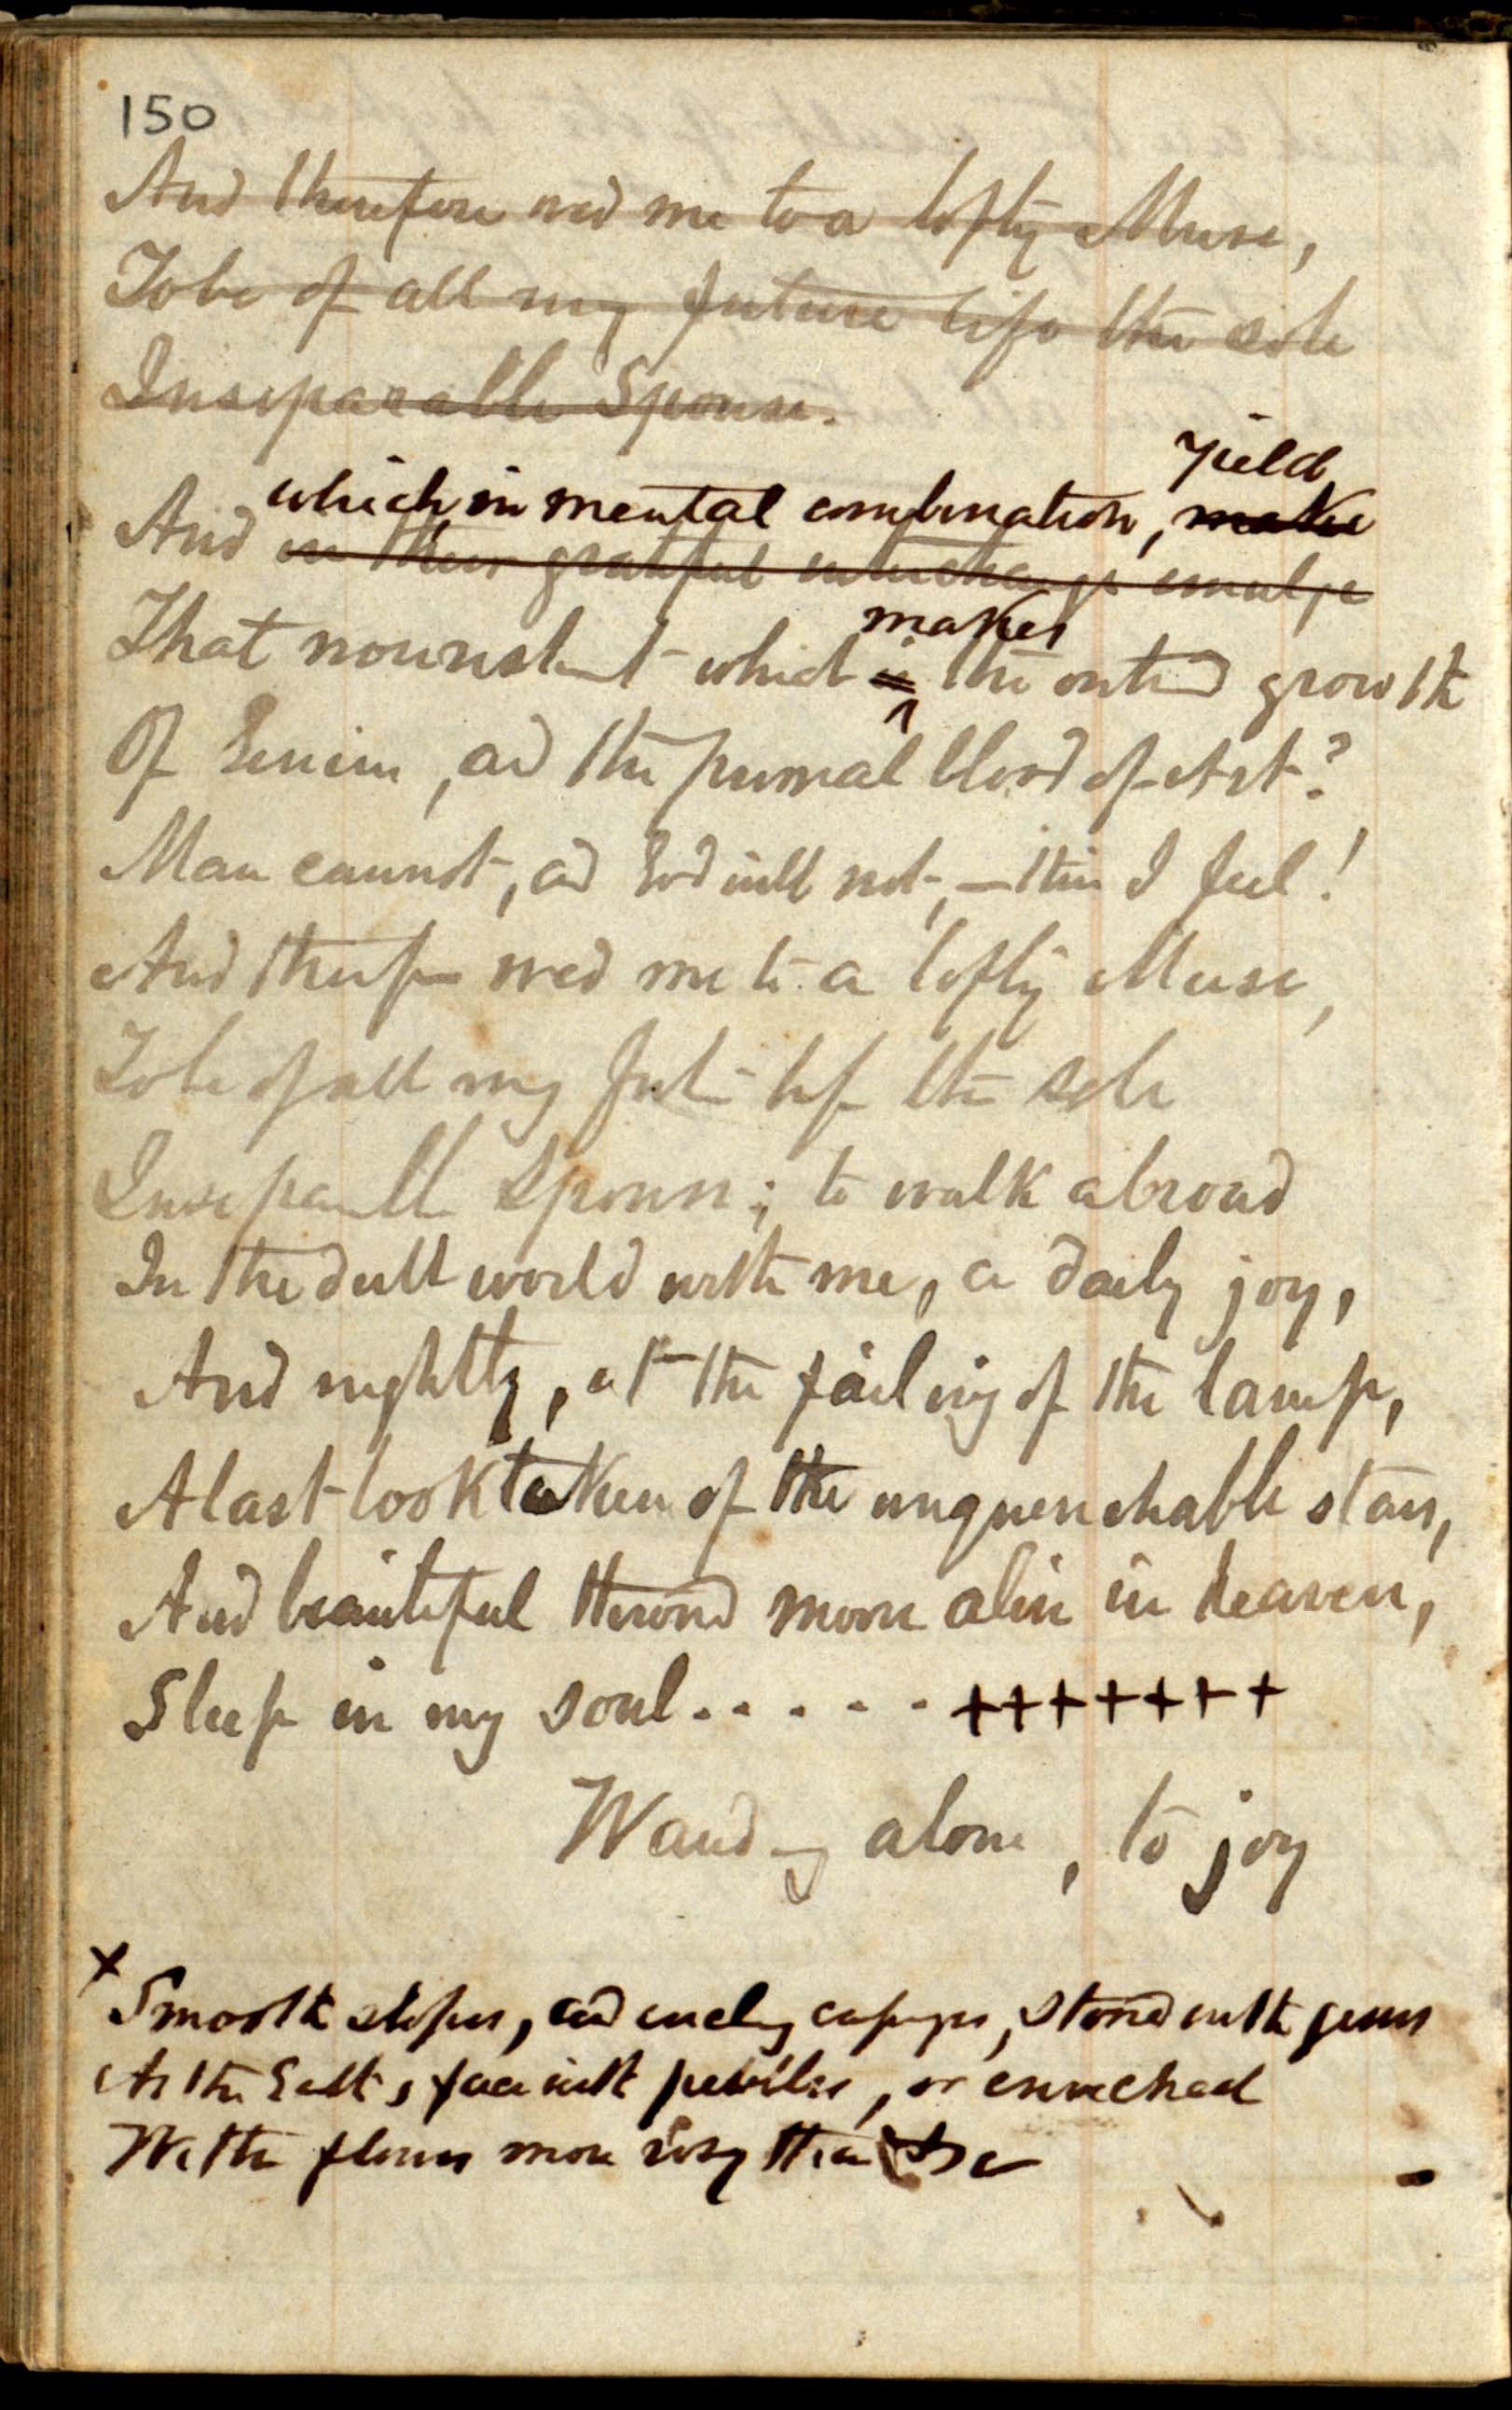 150
And therefore wed me to a lofty Muse,
To be of all my future life the sole
Inseparable Spouse.
yield
which, in mental combination, make
And in their grateful interchange emulge
makes
That nourishmt which is the outwd growth
Of Genius, ad the primal blood of Art?
Man cannot, ad God will not, — this I feel!
And therefore wed me to a lofty Muse,
To be of all my future life the sole
Inseparable Spouse; to walk abroad
In the dull world with me, a daily joy,
And nightly, at the failing of the lamp,
A last look taken of the unquenchable stars,
And beautiful throned moon alive in heaven,
Sleep in my soul. . . . . . +++++++
Wandg alone, to joy
x
Smooth slopes, ad curling capes, stored with gems
As the Salt's face with pebbles, or enriched
With flowers more rosy than